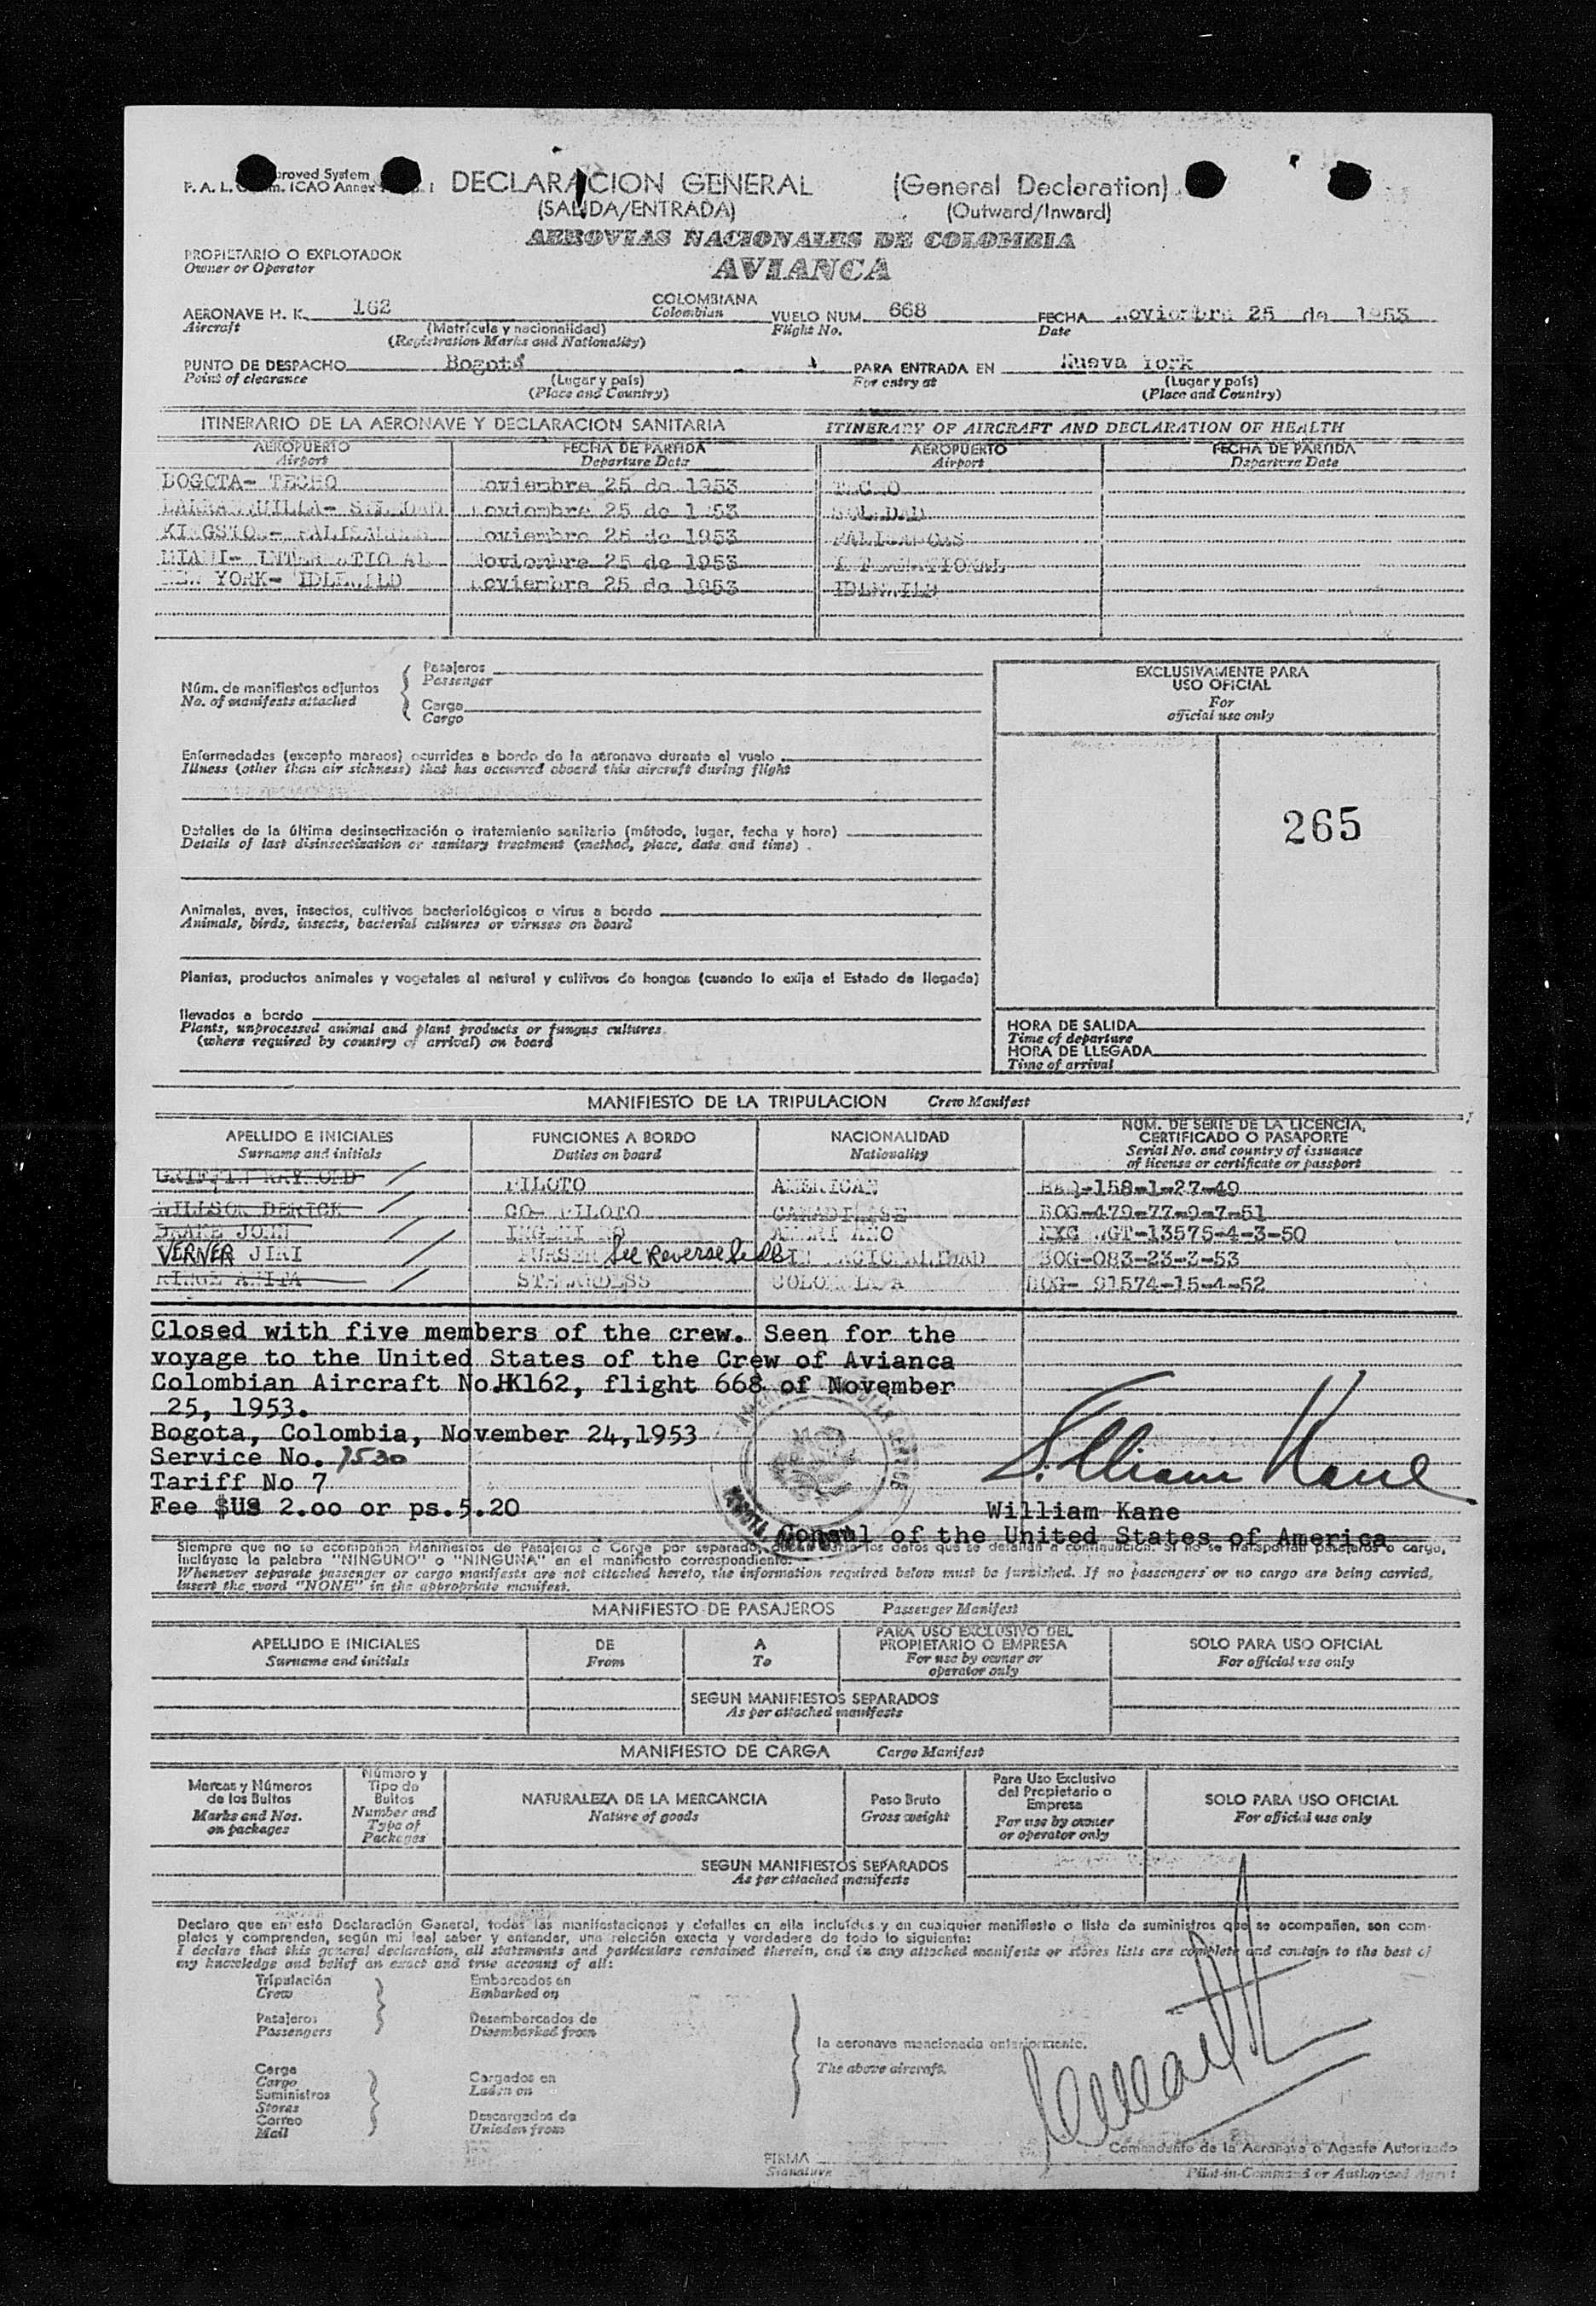 proved System
F. A. L. ICAO Annex
DECLARACION GENERAL (General Declaration)
(SALIDA/ENTRADA) (Outward/Inward)
AEROVIAS NACIONALES DE COLOMBIA
PROPIETARIO O EXPLOTADOR
Owner or Operator
AVIANCA
AERONAVE H. K. 162 COLOMBIANA VUELO NUM. 668 FECHA Noviembre 25 de 1953
Aircraft (Matrícula y nacionalidad) Colombian Flight No. Date
(Registration Marks and Nationality)
PUNTO DE DESPACHO Bogotá PARA ENTRADA EN Nueva York
Point of clearance (Lugar y país) For entry at (Lugar y país)
(Place and Country) (Place and Country)
ITINERARIO DE LA AERONAVE Y DECLARACION SANITARIA ITINERARY OF AIRCRAFT AND DECLARATION OF HEALTH
AEROPUERTO FECHA DE PARTIDA AEROPUERTO FECHA DE PARTIDA
Airport Departure Date Airport Departure Date
BOGOTA- TECHO Noviembre 25 de 1953 TECHO
BARRANQUILLA- SOLEDAD Noviembre 25 de 1953 SOLEDAD
KINGSTON- PALISADOES Noviembre 25 de 1953 PALISADOES
MIAMI- INTERNATIONAL Noviembre 25 de 1953 INTERNATIONAL
NEW YORK- IDLEWILD Noviembre 25 de 1953 IDLEWILD
Núm. de manifiestos adjuntos
No. of manifests attached
Pasajeros
Passenger
Carga
Cargo
EXCLUSIVAMENTE PARA
USO OFICIAL
For
official use only
265
Enfermedades (excepto mareos) ocurridas a bordo de la aeronave durante el vuelo
Illness (other than air sickness) that has occurred aboard this aircraft during flight
Detalles de la última desinsectización o tratamiento sanitario (método, lugar, fecha y hora)
Details of last disinsectisation or sanitary treatment (method, place, date and time)
Animales, aves, insectos, cultivos bacteriológicos o virus a bordo
Animals, birds, insects, bacterial cultures or viruses on board
Plantas, productos animales y vegetales al natural y cultivos de hongos (cuando lo exija el Estado de llegada)
llevados a bordo
Plants, unprocessed animal and plant products or fungus cultures
(where required by country of arrival) on board
HORA DE SALIDA
Time of departure
HORA DE LLEGADA
Time of arrival
MANIFIESTO DE LA TRIPULACION Crew Manifest
APELLIDO E INICIALES FUNCIONES A BORDO NACIONALIDAD NUM. DE SERIE DE LA LICENCIA, CERTIFICADO O PASAPORTE
Surname and initials Duties on board Nationality Serial No. and country of issuance of license or certificate or passport
GRIFFIN RAYMOND PILOTO AMERICAN BAQ-158-1-27-49
WILLSON DERICK CO- PILOTO CANADIENSE BOG-479-77-9-7-51
DRAKE JOHN -13575-4-3-50
VERNER JIRI PURSER See Reverse Side NACIONALIDAD BOG-083-23-3-53
ANITA STEWARDESS COLOMBIANA BOG- 91574-15-4-52
Closed with five members of the crew. Seen for the
voyage to the United States of the Crew of Avianca
Colombian Aircraft No.HK162, flight 668 of November
25, 1953.
Bogota, Colombia, November 24,1953
Service No. 7530
Tariff No 7
Fee $US 2.00 or ps.5.20
William Kane
William Kane
Consul of the United States of America
Siempre que no se acompañen Manifiestos de Pasajeros o Carga por separado, los datos que se detallan a continuación. Si no se transportan pasajeros o carga,
inclúyase la palabra "NINGUNO" o "NINGUNA" en el manifiesto correspondiente.
Whenever separate passenger or cargo manifests are not attached hereto, the information required below must be furnished. If no passengers or no cargo are being carried,
insert the word "NONE" in the appropriate manifest.
MANIFIESTO DE PASAJEROS Passenger Manifest
APELLIDO E INICIALES DE A PARA USO EXCLUSIVO DEL PROPIETARIO O EMPRESA SOLO PARA USO OFICIAL
Surname and initials From To For use by owner or operator only For official use only
SEGUN MANIFIESTOS SEPARADOS
As per attached manifests
MANIFIESTO DE CARGA Cargo Manifest
Marcas y Números de los Bultos Número y Tipo de Bultos NATURALEZA DE LA MERCANCIA Peso Bruto Para Uso Exclusivo del Propietario o Empresa SOLO PARA USO OFICIAL
Marks and Nos. on packages Number and Type of Packages Nature of goods Gross weight For use by owner or operator only For official use only
SEGUN MANIFIESTOS SEPARADOS
As per attached manifests
Declaro que en esta Declaración General, todas las manifestaciones y detalles en ella incluídos y en cualquier manifiesto o lista de suministros que se acompañen, son com-
pletos y comprenden, según mi leal saber y entender, una relación exacta y verdadera de todo lo siguiente:
I declare that this general declaration, all statements and particulars contained therein, and in any attached manifests or stores lists are complete and contain to the best of
my knowledge and belief an exact and true account of all:
Tripulación Embarcados en
Crew Embarked on
Pasajeros Desembarcados de
Passengers Disembarked from
la aeronave mencionada anteriormente.
The above aircraft.
Carga Cargados en
Cargo Laden on
Suministros
Stores
Correo Descargados de
Mail Unladen from
FIRMA Comandante de la Aeronave o Agente Autorizado
Signature Pilot-in-Command or Authorized Agent